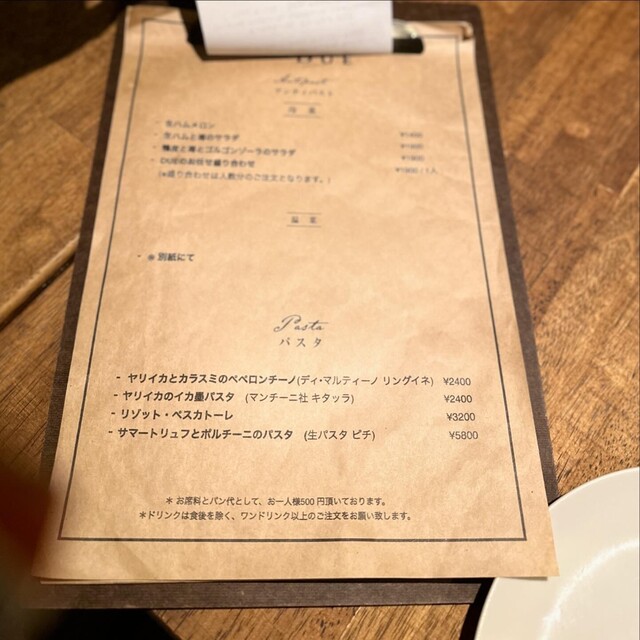 アンティパスト
冷菜
- 生ハムメロン
- 生ハムと苺のサラダ ¥1800
- 鴨皮と苺とゴルゴンゾーラのサラダ ¥1900
- DUEのお任せ盛り合わせ ¥1900 / 1人
(※盛り合わせは人数分のご注文となります。)
温菜
- ※別紙にて
Pasta
パスタ
- ヤリイカとカラスミのペペロンチーノ(ディ・マルティーノ リングイネ) ¥2400
- ヤリイカのイカ墨パスタ (マンチーニ社 キタッラ) ¥2400
- リゾット・ペスカトーレ ¥3200
- サマートリュフとポルチーニのパスタ (生パスタ ピチ) ¥5800
* お席料とパン代として、お一人様500円頂いております。
*ドリンクは食後を除く、ワンドリンク以上のご注文をお願い致します。